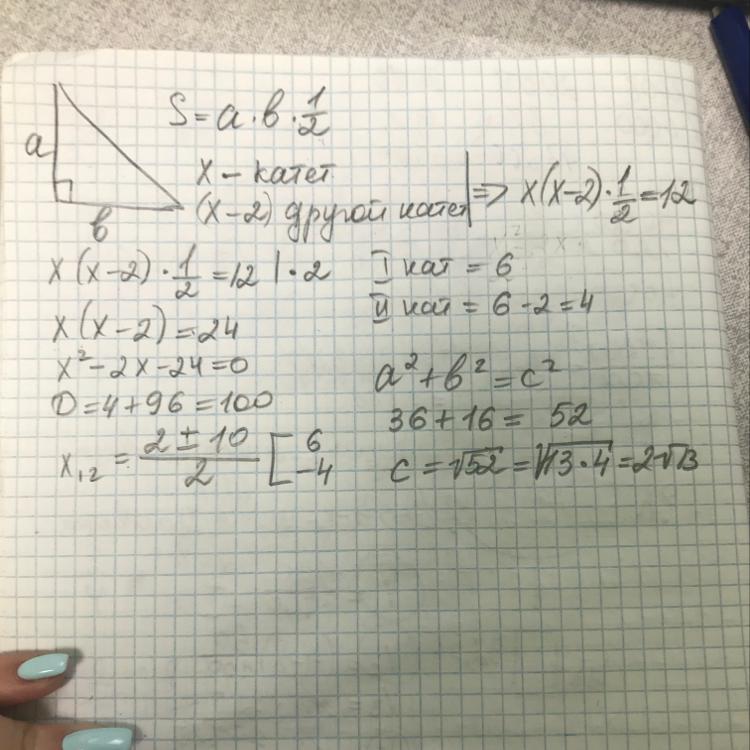 a
b
S = a · b · 1/2
x – катет
(x–2) другой катет | => x(x–2) · 1/2 = 12
x(x–2) · 1/2 = 12 | · 2
x(x–2) = 24
x² – 2x – 24 = 0
D = 4 + 96 = 100
x₁,₂ = (2 ± 10)/2 [ 6
–4
I кат = 6
II кат = 6 - 2 = 4
a² + b² = c²
36 + 16 = 52
c = √52 = √13·4 = 2√13